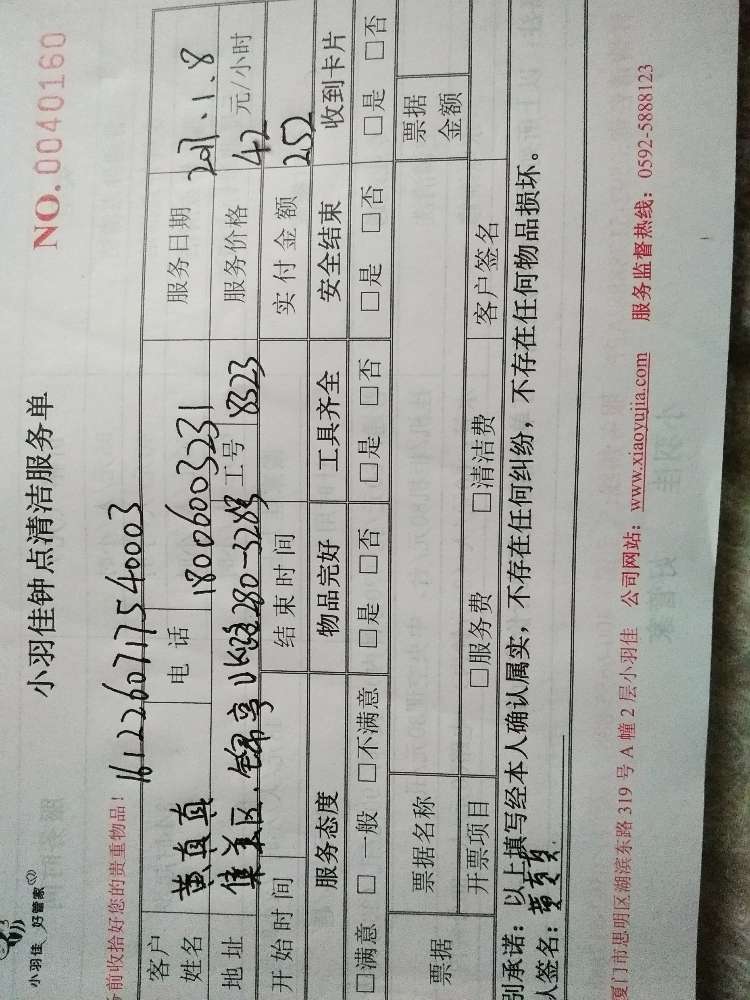 小羽佳 好管家
小羽佳钟点清洁服务单
NO.0040160
前收拾好您的贵重物品!
1612260717540003
客户姓名 黄真真 电话 18006003231 服务日期 2017.1.8
地址 集美区.锦亭北路280-328号 工号 8323 服务价格 42 元/小时
开始时间 结束时间 实付金额 252
服务态度 物品完好 工具齐全 安全结束 收到卡片
□满意 □一般 □不满意 □是 □否 □是 □否 □是 □否 □是 □否
票据 票据名称 票据金额
开票项目 □服务费 □清洁费 客户签名
别承诺:以上填写经本人确认属实,不存在任何纠纷,不存在任何物品损坏。
人签名:
厦门市思明区湖滨东路 319 号 A 幢 2 层小羽佳 公司网站:www.xiaoyujia.com 服务监督热线:0592-5888123